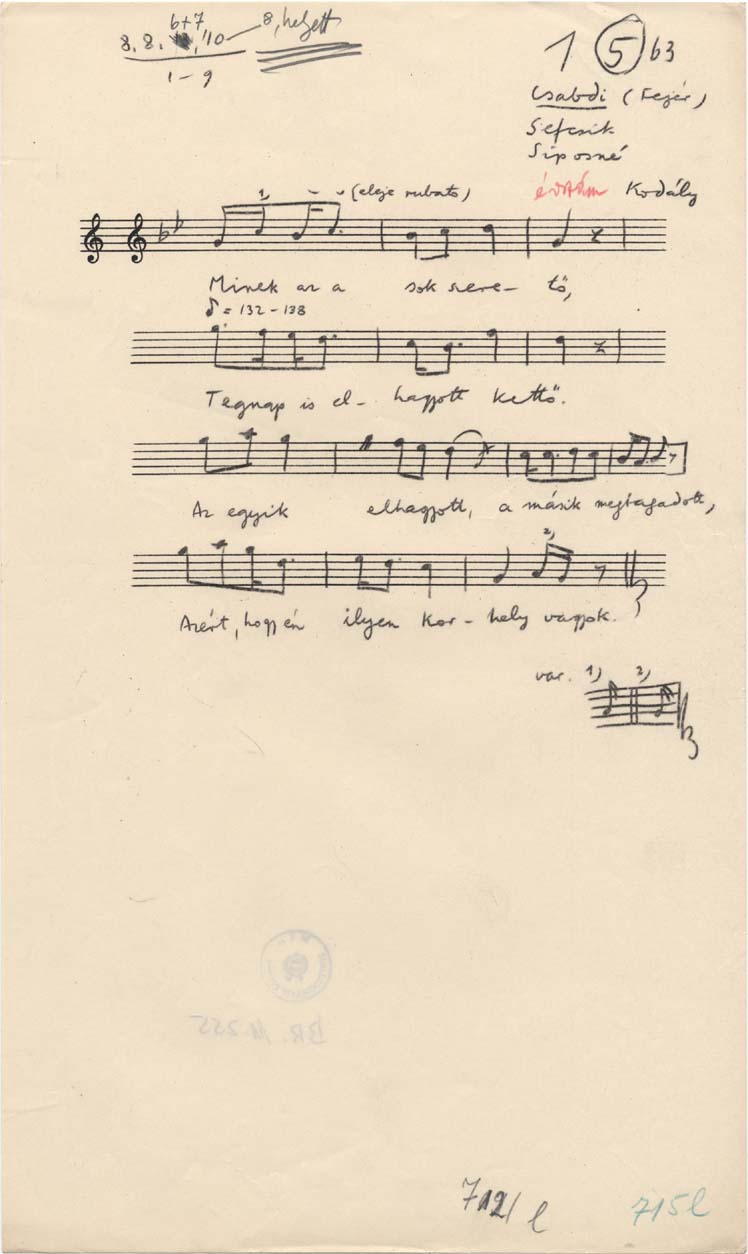 6+7
8, helyett
8. 8. 10
1-9
1 5 63
Csabdi (Fejér)
Sefcsik
Siposné
Kodály
1, (eleje rubato)
Minek az a sok szere- tő,
= 132-138
Tegnap is el- hagyott kettő.
Az egyik elhagyott, a másik megtagadott,
2,
Azért, hogy én ilyen kor- hely vagyok.
var. 1) 2)
BR. 11.255
712/ l
715l